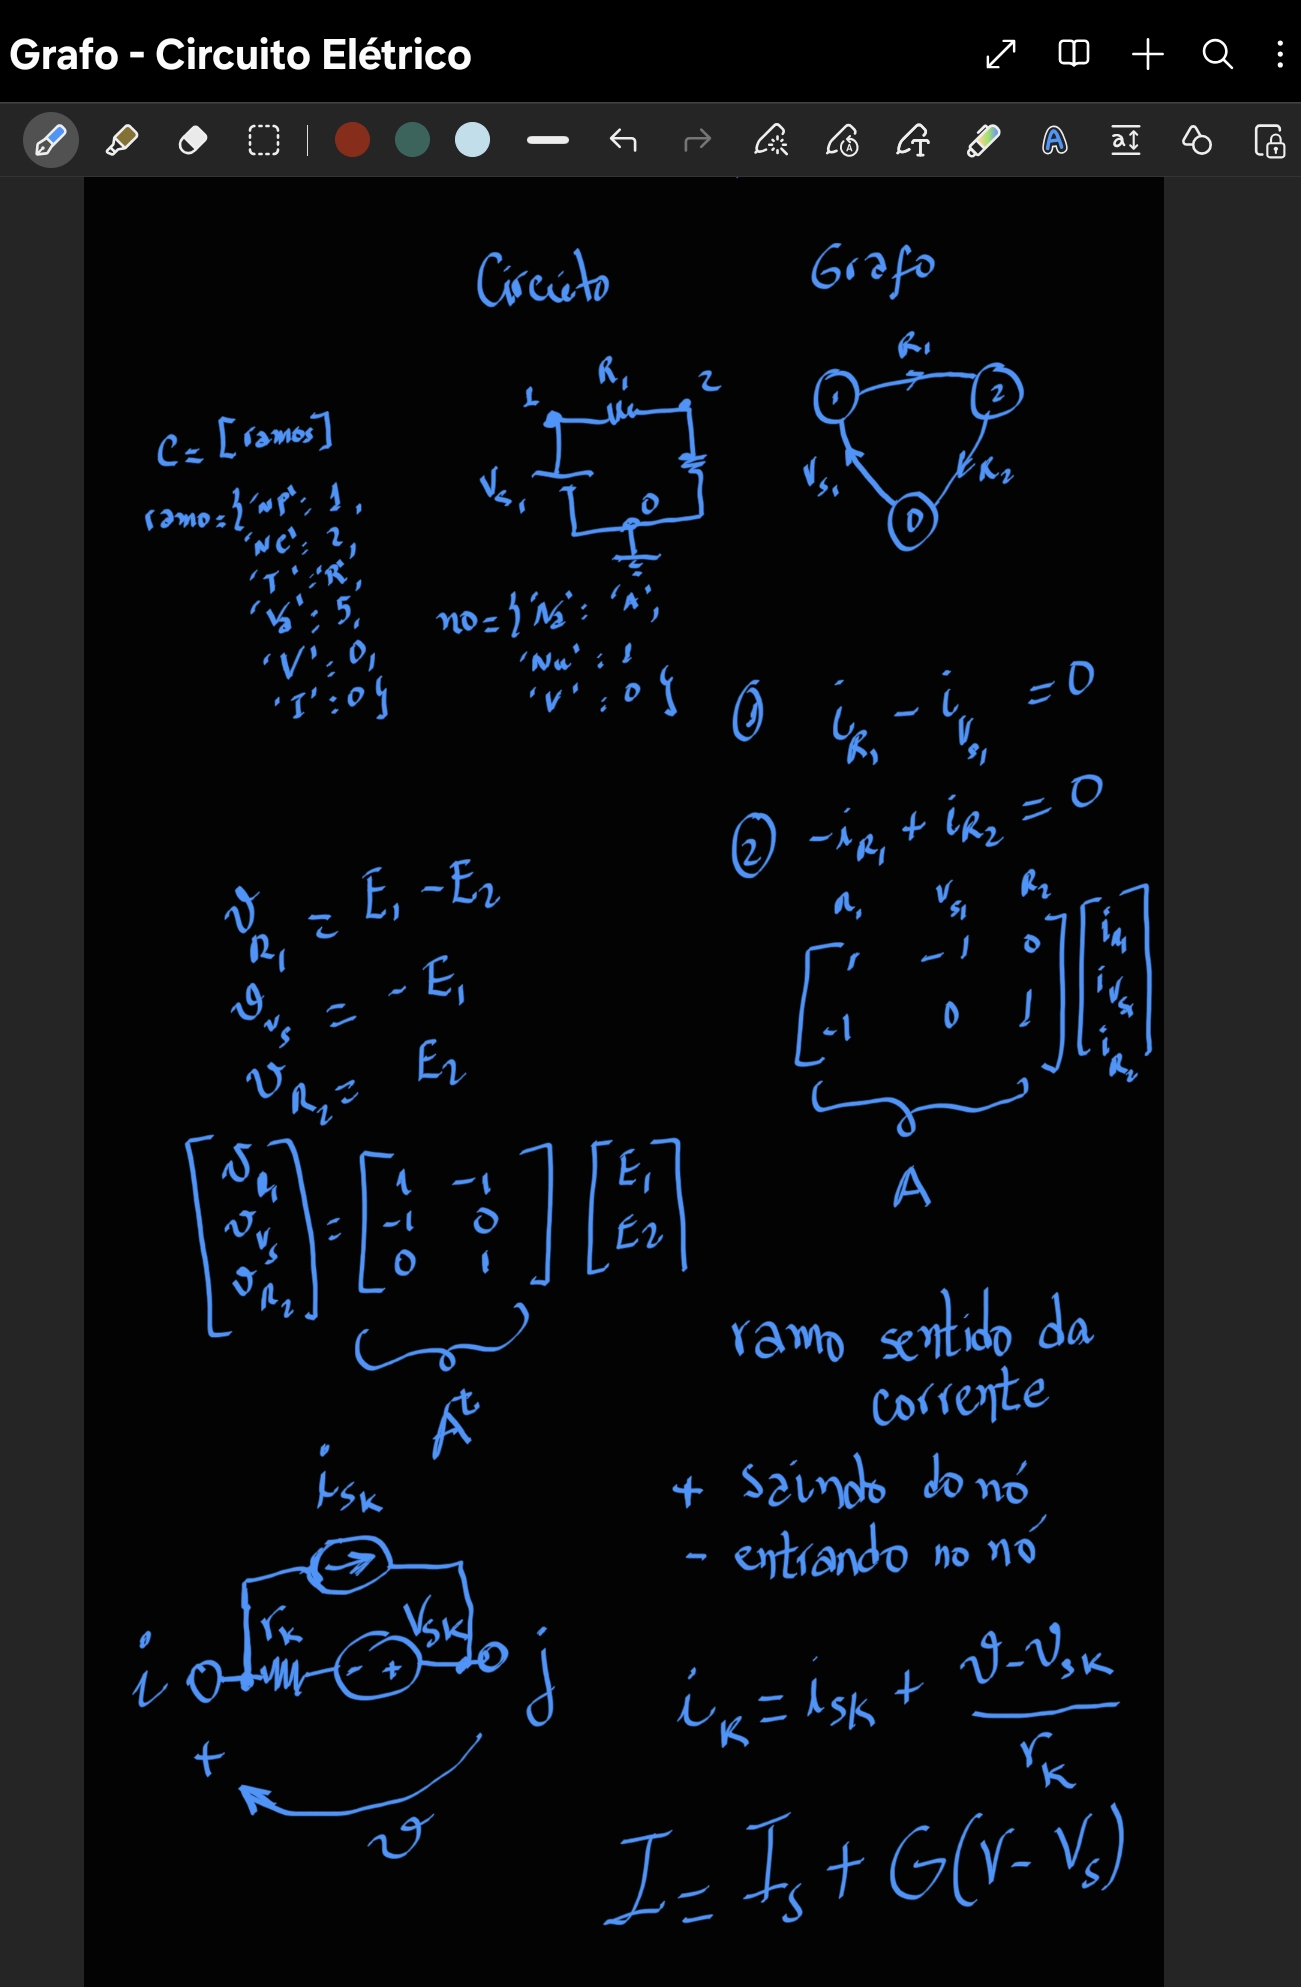 Grafo - Circuito Elétrico
Circuito
Grafo
R₁
1
2
Vs₁
0
R₁
1
2
Vs₁
R₂
0
C = [ramos]
ramo = {'NP': 1,
'NC': 2,
'T': 'R',
'Va': 5,
'V': 0,
'I': 0}
no = {'Na': 'A',
'Nu': 1
'V': 0}
① i_R₁ - i_Vs₁ = 0
② -i_R₁ + i_R₂ = 0
v_R₁ = E₁ - E₂
v_vs = - E₁
v_R₂ = E₂
R₁ Vs₁ R₂
[1 -1 0] [i_R₁]
[-1 0 1] [i_Vs₁]
[i_R₂]
A
[v_R₁] = [1 -1] [E₁]
[v_Vs] [-1 0] [E2]
[v_R₂] [0 1]
Aᵗ
ramo sentido da
corrente
+ saindo do nó
- entrando no nó
i_SK
r_K
V_SK
- +
i
j
+
v
i_K = i_SK + (v - v_SK) / r_K
I = I_s + G(V - V_s)